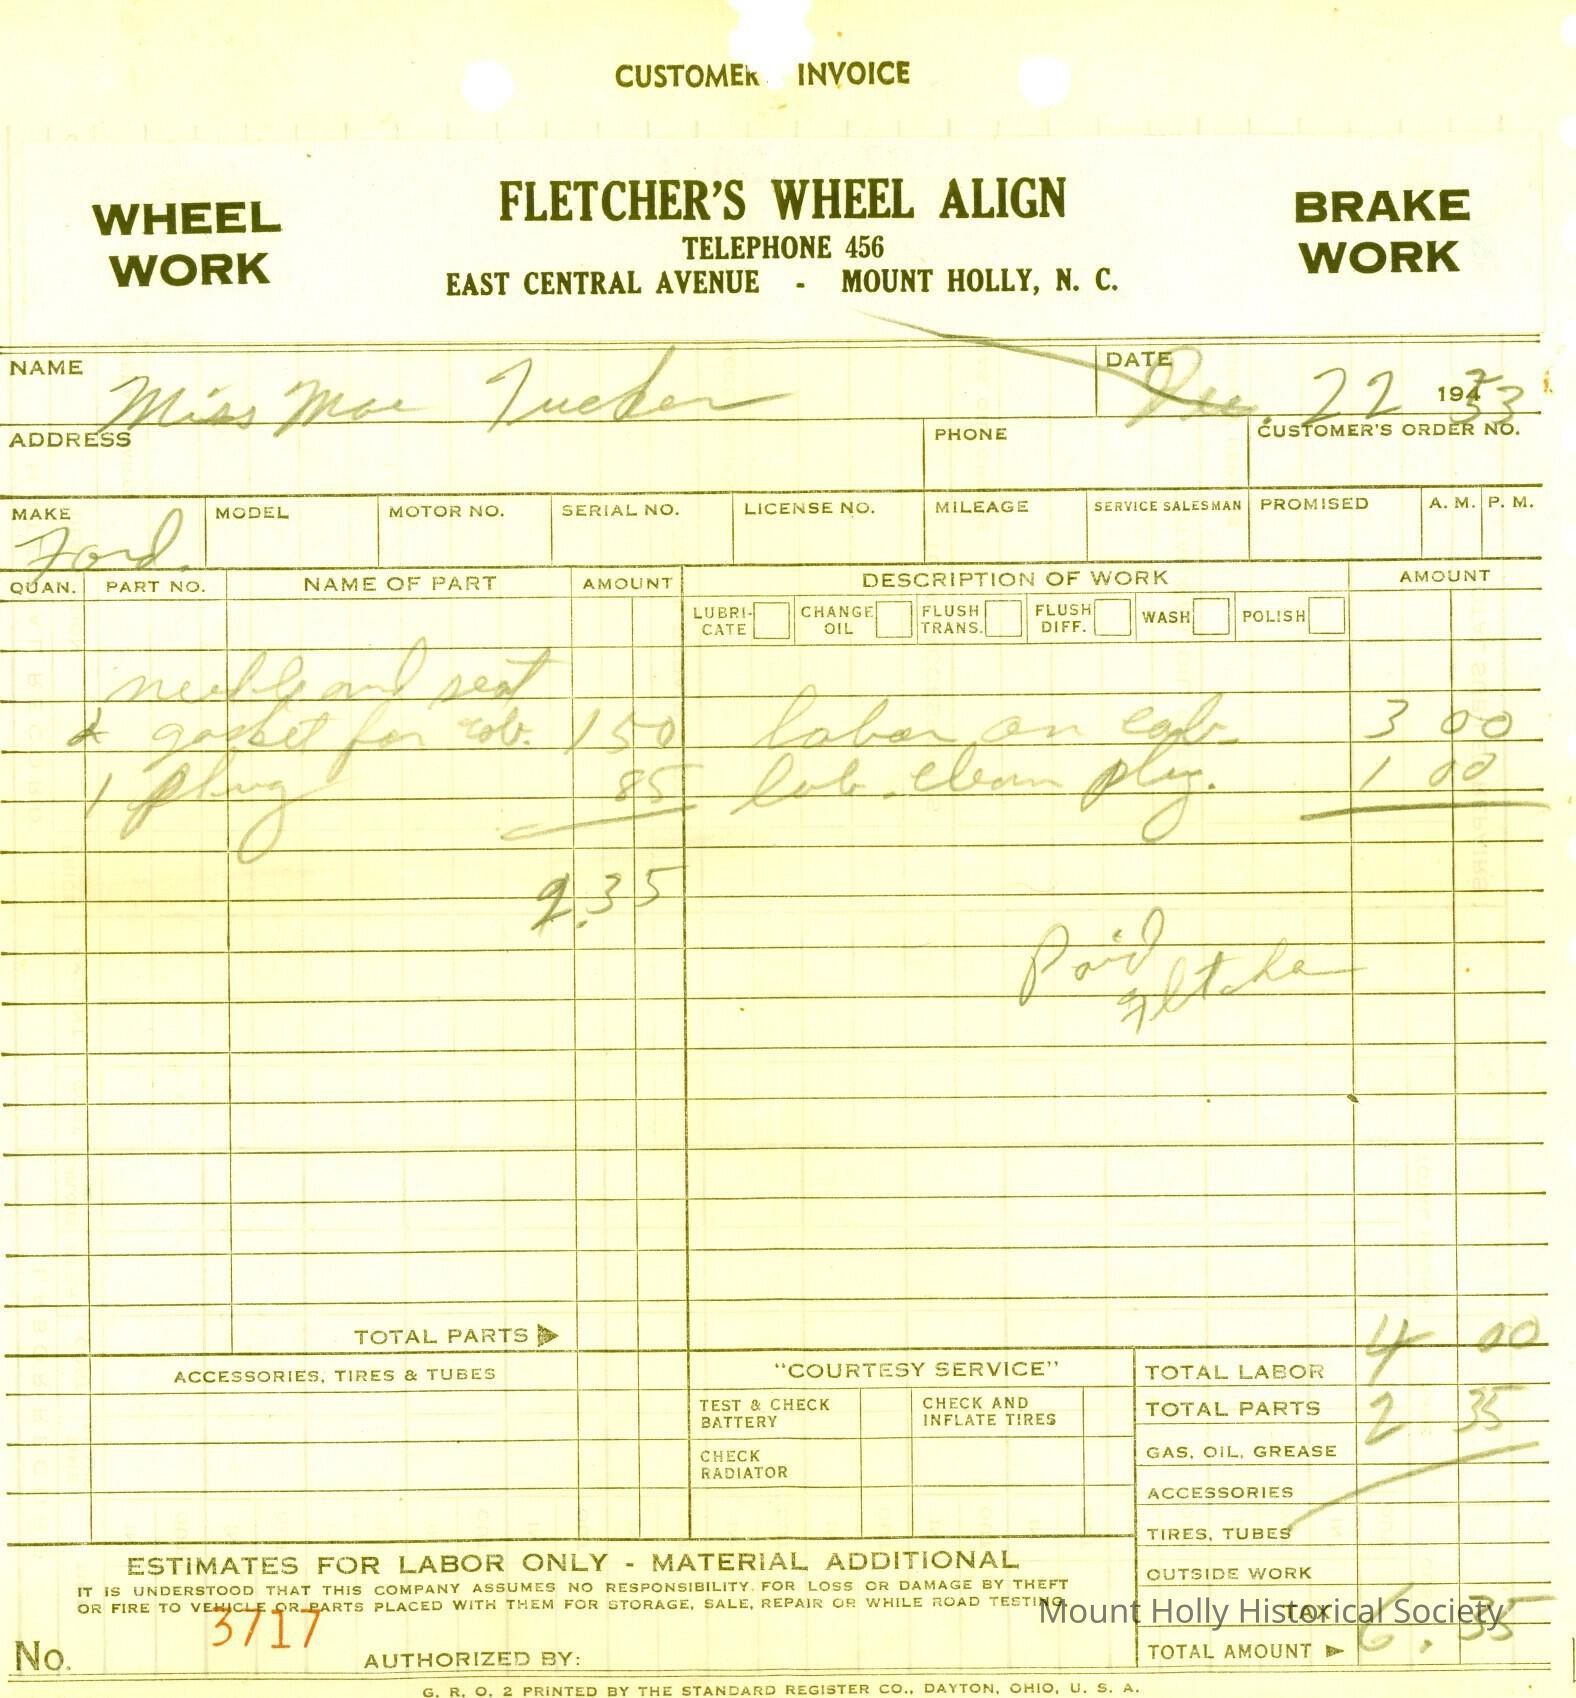 CUSTOMER INVOICE
WHEEL WORK
FLETCHER'S WHEEL ALIGN
TELEPHONE 456
EAST CENTRAL AVENUE - MOUNT HOLLY, N. C.
BRAKE WORK
NAME Miss Mae Tucker
DATE Dec. 22 1953
ADDRESS PHONE CUSTOMER'S ORDER NO.
MAKE MODEL MOTOR NO. SERIAL NO. LICENSE NO. MILEAGE SERVICE SALESMAN PROMISED A. M. P. M.
Ford.
QUAN. PART NO. NAME OF PART AMOUNT DESCRIPTION OF WORK AMOUNT
LUBRI-CATE CHANGE OIL FLUSH TRANS. FLUSH DIFF. WASH POLISH
needle and seat
& gasket for 1 50 labor on carb 3 00
1 plug 85 lab. clean plug. 1 00
2.35
Paid
Fletcher
TOTAL PARTS
4 00
ACCESSORIES, TIRES & TUBES
"COURTESY SERVICE"
TEST & CHECK BATTERY
CHECK AND INFLATE TIRES
CHECK RADIATOR
TOTAL LABOR
TOTAL PARTS 2 35
GAS, OIL, GREASE
ACCESSORIES
TIRES, TUBES
OUTSIDE WORK
TAX
TOTAL AMOUNT 6.35
ESTIMATES FOR LABOR ONLY - MATERIAL ADDITIONAL
IT IS UNDERSTOOD THAT THIS COMPANY ASSUMES NO RESPONSIBILITY FOR LOSS OR DAMAGE BY THEFT
OR FIRE TO VEHICLE OR PARTS PLACED WITH THEM FOR STORAGE, SALE, REPAIR OR WHILE ROAD TESTING
Mount Holly Historical Society
No. 3717
AUTHORIZED BY:
G. R. O. 2 PRINTED BY THE STANDARD REGISTER CO., DAYTON, OHIO, U. S. A.